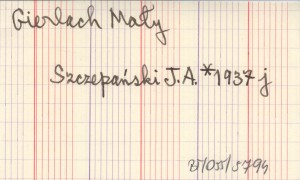 Gierlach Mały
Szczepański J.A. *1937 j